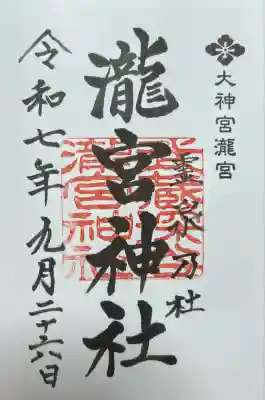 大神宮瀧宮
霊泉乃社
瀧宮神社
令和七年九月二十六日